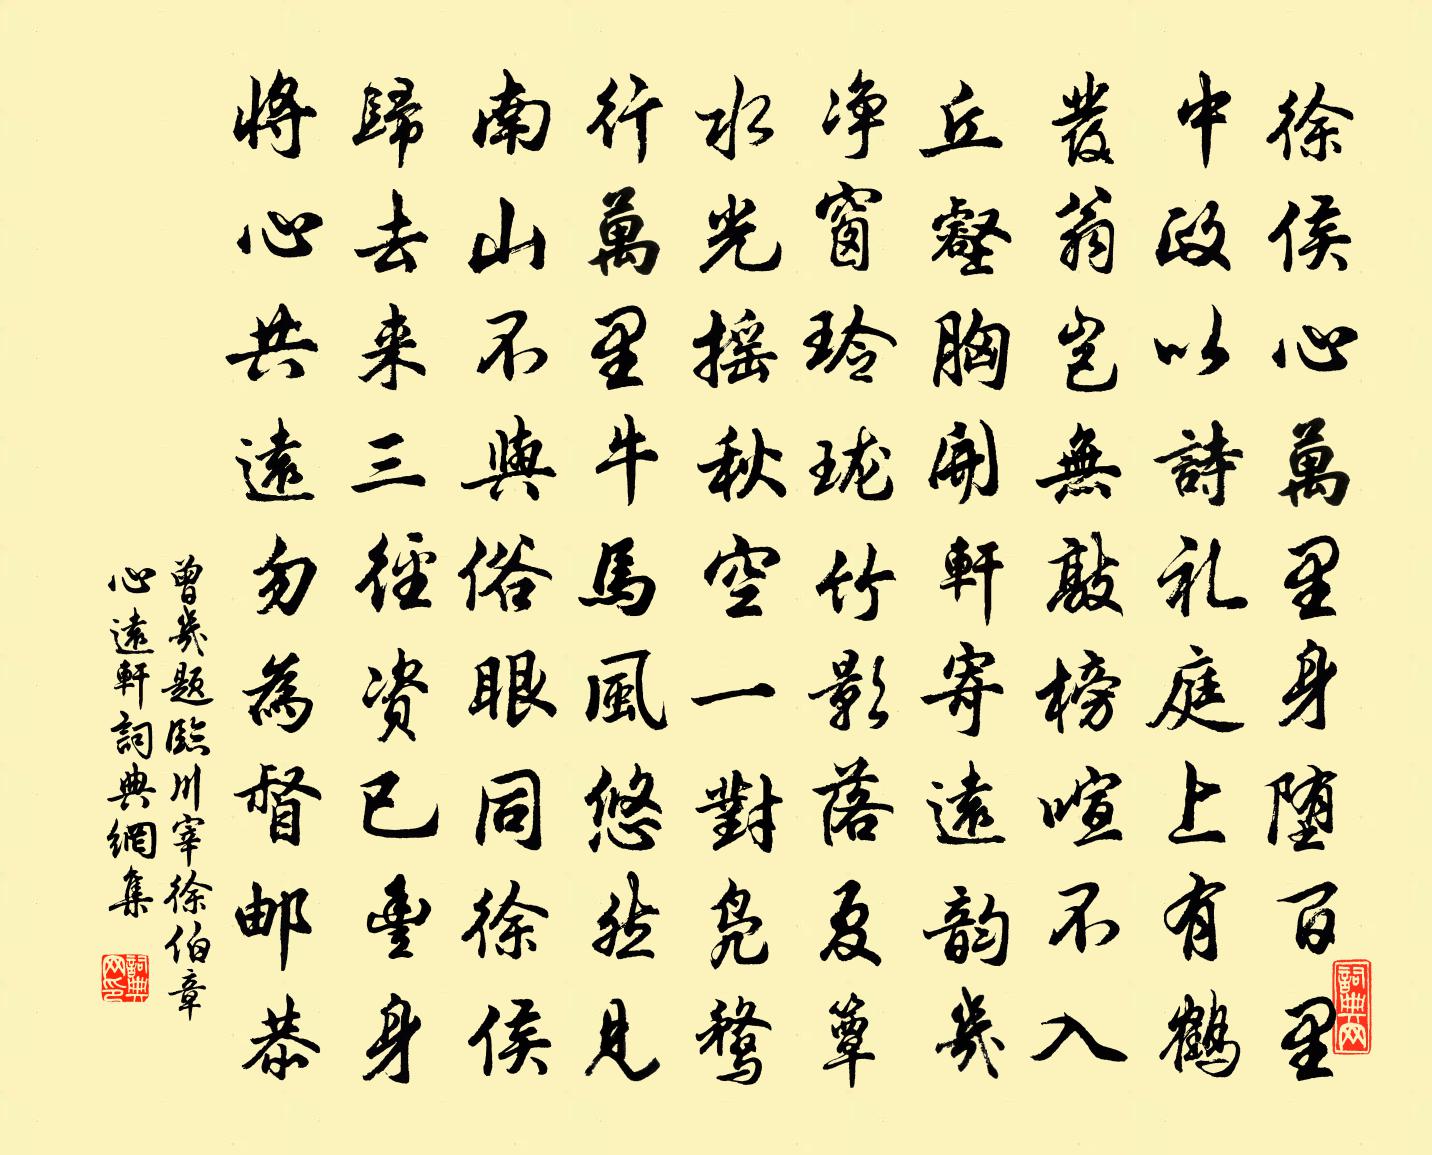 徐侯心萬里身堕百里
中政以詩礼庭上有鶴
發翁岂無敲榜喧不入
丘壑胸開軒寄遠韵幾
净窗玲珑竹影落夏簟
水光摇秋空一對凫鶩
行萬里牛馬風悠然見
南山不與俗眼同徐侯
歸去来三徑資已豐身
將心共遠勿為督邮恭
曾幾题臨川宰徐伯章
心遠軒詞典網集
詞典网
詞典网印